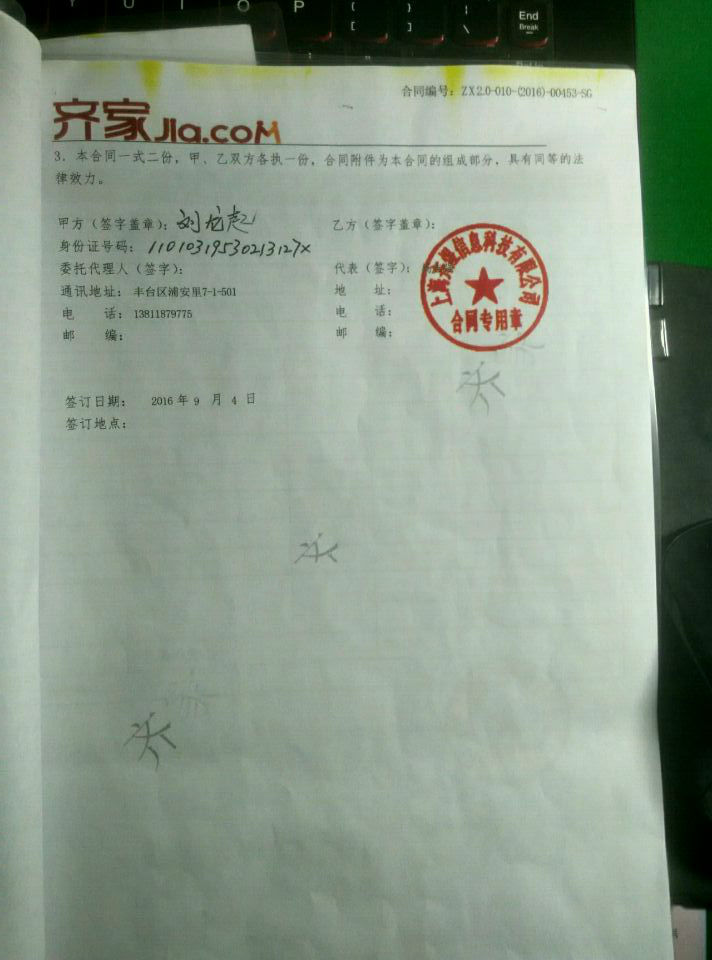 Y U I O P { } | End
[ ] \ Break
合同编号：ZX2.0-010-(2016)-00453-SG
齐家Jia.com
3．本合同一式二份，甲、乙双方各执一份，合同附件为本合同的组成部分，具有同等的法
律效力。
甲方（签字盖章）：刘龙起 乙方（签字盖章）：
身份证号码：11010319530213127X
委托代理人（签字）： 代表（签字）：
通讯地址：丰台区浦安里7-1-501 地 址：
电 话：13811879775 电 话：
邮 编： 邮 编：
信息科技有限公司
合同专用章
签订日期： 2016 年 9 月 4 日
签订地点：